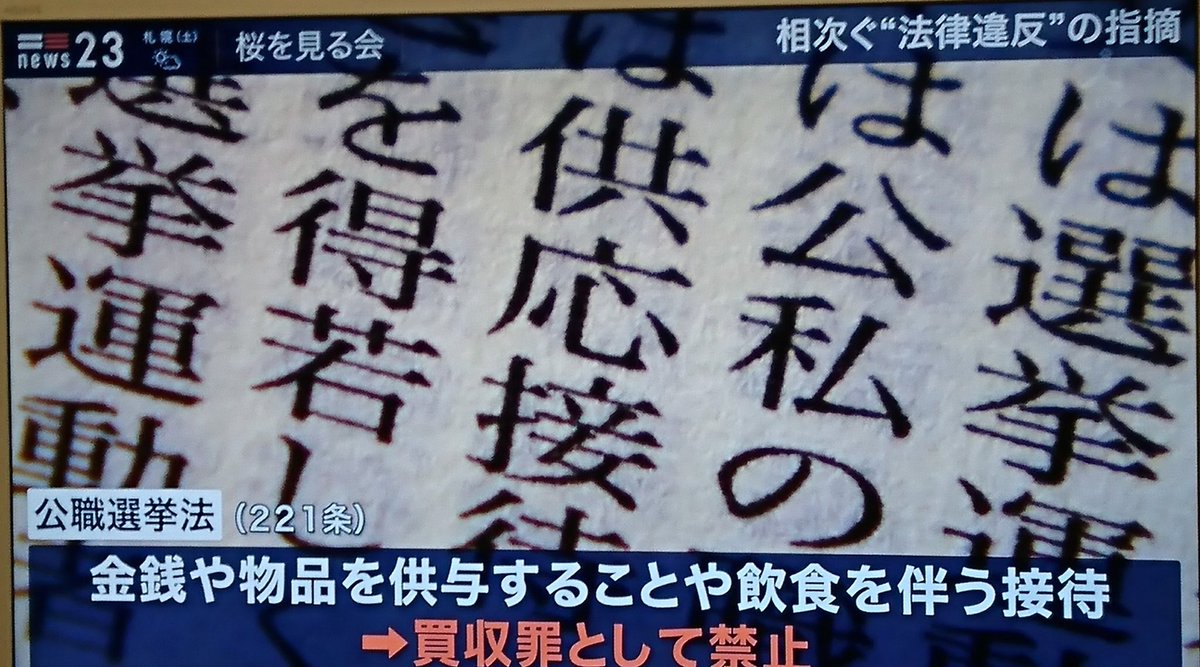 news23
札幌(土)
桜を見る会
相次ぐ“法律違反”の指摘
は選挙運
は公私の
は供応接待
を得若し
選挙運動
公職選挙法
(221条)
金銭や物品を供与することや飲食を伴う接待
➡買収罪として禁止